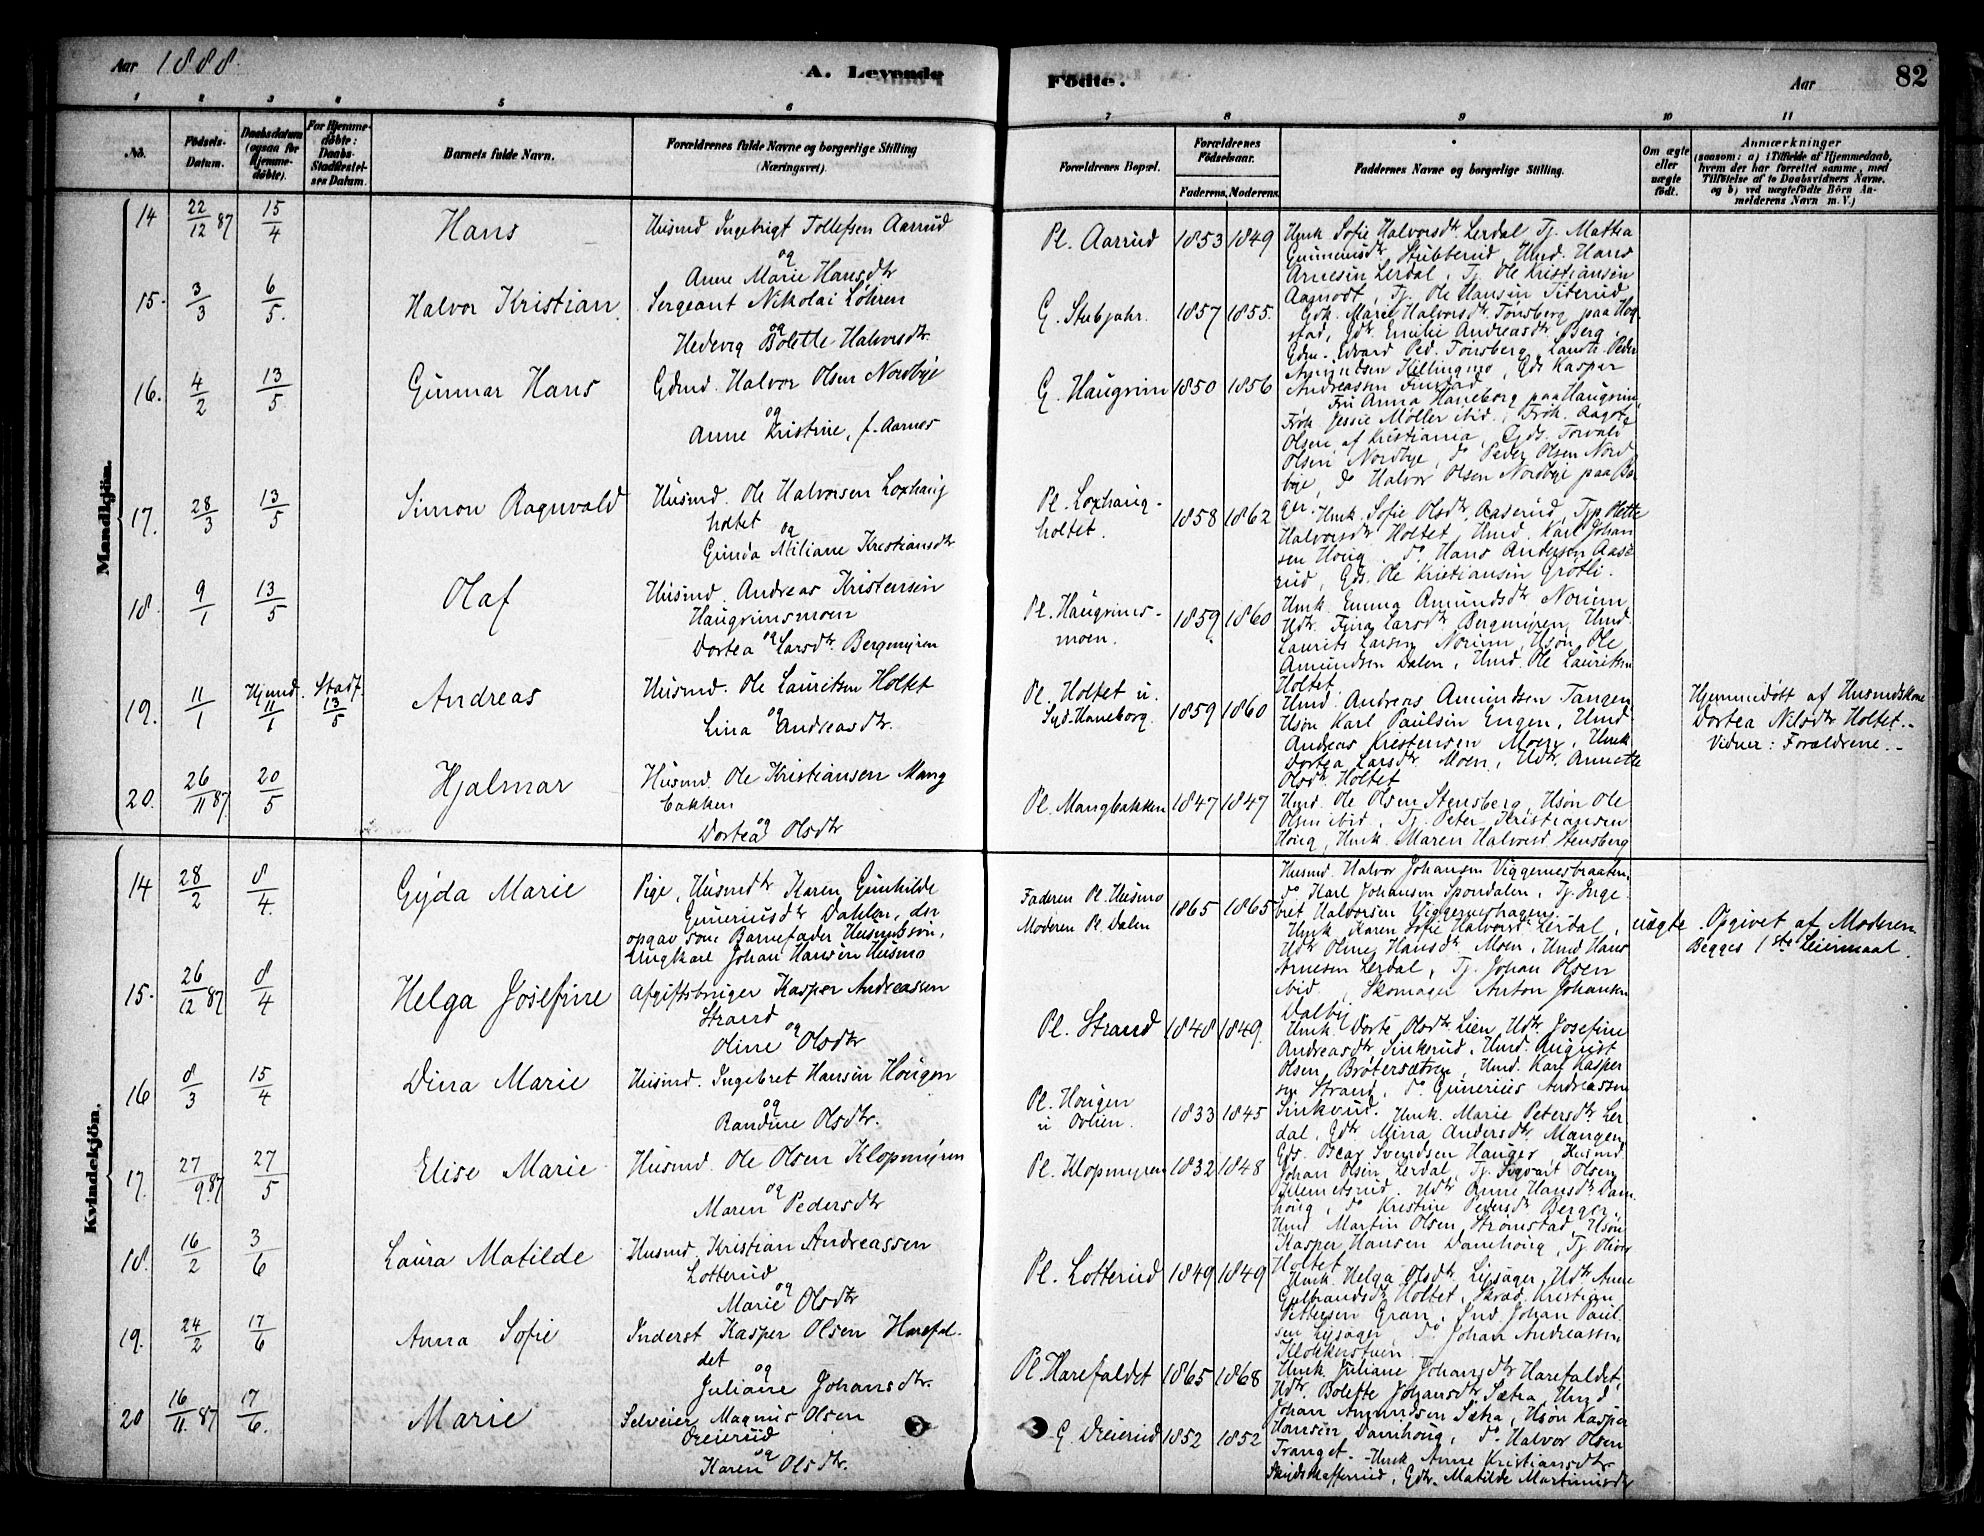 Aar 1888.
A. Levende
Födte.
Aar
82
1 2 3 4 5 6 7 8 9 10 11
No.
Födsels-Datum.
Daabsdatum (ogsaa for Hjemme-döbte).
For Hjemme-döbte: Daabs-Stadfæstel-ses Datum.
Barnets fulde Navn.
Forældrenes fulde Navne og borgerlige Stilling (Næringsvei).
Forældrenes Bopæl.
Forældrenes Födselsaar.
Faderens. Moderens.
Faddernes Navne og borgerlige Stilling.
Om ægte eller uægte födt.
Anmærkninger
(saasom: a) i Tilfælde af Hjemmedaab, hvem der har forrettet samme, med Tilföielse af to Daabsvidners Navne, og b) ved uægtefödte Börn An-melderens Navn m. V.)
Mandkjön.
14 22/12 87 15/4 Hans
Husmd Ingebrigt Tollefsen Aarrud
og
Anne Marie Hansdtr
Pl. Aarrud 1853 1849
Hmk. Sofie Halvorsdtr Lerdal, Tj. Mathea
Gunneriusdtr Stubberud, Hmd. Hans
Arnesen Lerdal, Tj. Ole Kristiansen
Aamodt, Tj. Ole Hansen Titerud
15. 3/3 6/5. Halvor Kristian.
Sergeant Nikolai Löhren
og
Hedevig Bolette Halvorsdtr.
G. Stubjahr. 1857 1855.
Gdk. Marie Halvorsdtr Tonsberg paa Hog-
stad, Gdtr Emilie Andreasdtr Berg,
Gdm. Edvard Ped. Tonsberg, Landh. Peder
Amundsen Killingmo, Gds Kasper
Andreassen Finstad
16. 4/2 13/5 Gunnar Hans
Gdmd. Halvor Olsen Nordbye
og
Anne Kristine, f. Aarnes
G. Haugrim 1850 1856
Fru Anna Haneborg paa Haugrim,
Frök Jessie Møller ibid., Frök. Aagot
Olsen af Kristiania, Gds. Torvald
Olsen Nordbye, do Peder Olsen Nord
bye, do Halvor Olsen Nordbye paa Ba-
ger.
17. 28/3 13/5 Simon Ragnvald
Husmd. Ole Halvorsen Loxhaug
holtet
og
Gunda Miliane Kristiansdtr
Pl. Loxhaug-
holtet. 1858 1862
Hmk. Sofie Olsdtr Aaserud, Tjp Olette
Halvorsdtr Holtet, Hmd. Karl Johan
sen Houg, do Hans Andersen Aase
rud, Gds. Ole Kristiansen Grøtli.
18. 9/1 13/5 Olaf
Husmd. Andreas Kristensen
Haugrimsmoen
og
Dortea Larsdtr. Bergmyren
Pl. Haugrims-
moen. 1859 1860
Hmk. Emma Amundsdtr Norum,
Hdtr. Fina Larsdtr Bergmyren, Hmd.
Laurits Larsen Norum, Hsøn Ole
Amundsen Dalen, Hmd. Ole Lauritsen
Holtet
19. 11/1 Hjemd. 11/1 Stadf. 13/5 Andreas
Husmd. Ole Lauritsen Holtet
og
Lina Andreasdtr.
Pl. Holtet u.
Syd. Haneborg. 1859 1860
Hmd. Andreas Amundsen Tangen,
Hsøn Karl Paulsen Engen, Hmd.
Andreas Kristensen Moen, Hmk.
Dortea Larsdtr Moen, Hdtr. Annette
Olsdtr. Holtet
Hjemmedøbt af Husmdskone
Dortea Nilsdtr Holtet.-
Vidner: Forældrene.-
20. 26/11 87. 20/5 Hjalmar
Husmd. Ole Kristiansen Mang
bakken
og
Dortea Olsdtr
Pl. Mangbakken 1847 1847
Hmd. Ole Olsen Stensberg, Hsøn Ole
Olsen ibid., Tj. Peter Kristiansen
Houg, Hmk. Maren Halvorsd. Stensberg
Kvindekjön.
14 28/2 8/4. Gyda Marie
Pige, Husmdtr Karen Gunhilde
Guneriusdtr Dahlen, der
opgav som Barnefader Husmdssøn,
Ungkarl Johan Hansen Husmo
Faderen Pl. Husmo
Moderen Pl. Dalen 1865 1865
Husmd. Halvor Johansen Viggernesbraaten,
do Karl Johansen Spondalen, Tj. Inge
bret Halvorsen Viggerneshagen,
Hmk. Karen Sofie Halvorsd Lerdal,
Hdtr Oline Hansdtr Moen, Hmd Hans
uægte
Opgivet af Moderen
Begges 1ste Leiermaal.
15. 26/12 87 8/4 Helga Josefine
Afgiftsbruger Kasper Andreassen
Strand
og
Oline Olsdtr
Pl. Strand 1848 1849.
Arnesen Lerdal, Tj. Johan Olsen
ibid., Skomager Anton Johansen
Dalby
Hmk. Dorte Olsdtr Lien, Hdtr. Josefine
Andreasdtr Sinkerud, Hmd. August
Olsen Brøtersætren, Hmd. Karl Kasper
sen Strand, do Gunerius Andreassen
Sinkerud.
16 8/3 15/4 Dina Marie
Husmd. Ingebret Hansen Hougen
og
Randine Olsdtr.
Pl. Hougen
u Ovlien. 1833 1845
Hmk. Marie Petersdtr Ler
dal, Gdtr Mina Andersdtr. Mangen,
Gds. Oscar Svendsen Hauger, Husmd
Johan Olsen Lerdal, Tj. Sigvart Olsen
Klemetsrud.
17. 27/9.87 27/5 Elise Marie
Husmd. Ole Olsen Klopmyren
og
Maren Pedersdtr
Pl. Klopmyren 1832 1848
Hdtr Anne Hansdtr Dam
houg, do Kristine Pedersdtr Berger,
Hmd Martin Olsen Strømstad, Hsøn
Kasper Hansen Damhoug, Tj. Oliver
Holtet
18. 16/2 3/6 Laura Matilde
Husmd. Kristian Andreassen
Lotterud
og
Marie Olsdtr
Pl. Lotterud 1849 1849
Hmk. Helga Olsdtr. Lysager, Hdtr. Anne
Gulbrandsdtr Holtet, Skræd. Kristian
Pettersen Gran, Ind Johan Paul
sen Lysager, do Johan Andreassen
Klokkerstuen
19. 24/2 17/6 Anna Sofie
Inderst Kasper Olsen Harefal-
det
og
Juliane Johansdtr.
Pl. Harefaldet 1865 1868
Hmk. Juliane Johansdtr Harefaldet,
Hdtr. Bolette Johansdtr Sætra, Hmd
Johan Amundsen Sætra, Hsøn Kasper
Hansen Damhoug, do Halvor Olsen
Tranget.
20 16/11. 87 17/6. Marie
Selveier Magnus Olsen
Dreierud
og
Karen Olsdtr.
G. Dreierud 1852 1852
- Hmk. Anne Kristiansdtr
Skydskafferrud, Gdtr. Matilde Martinusdtr